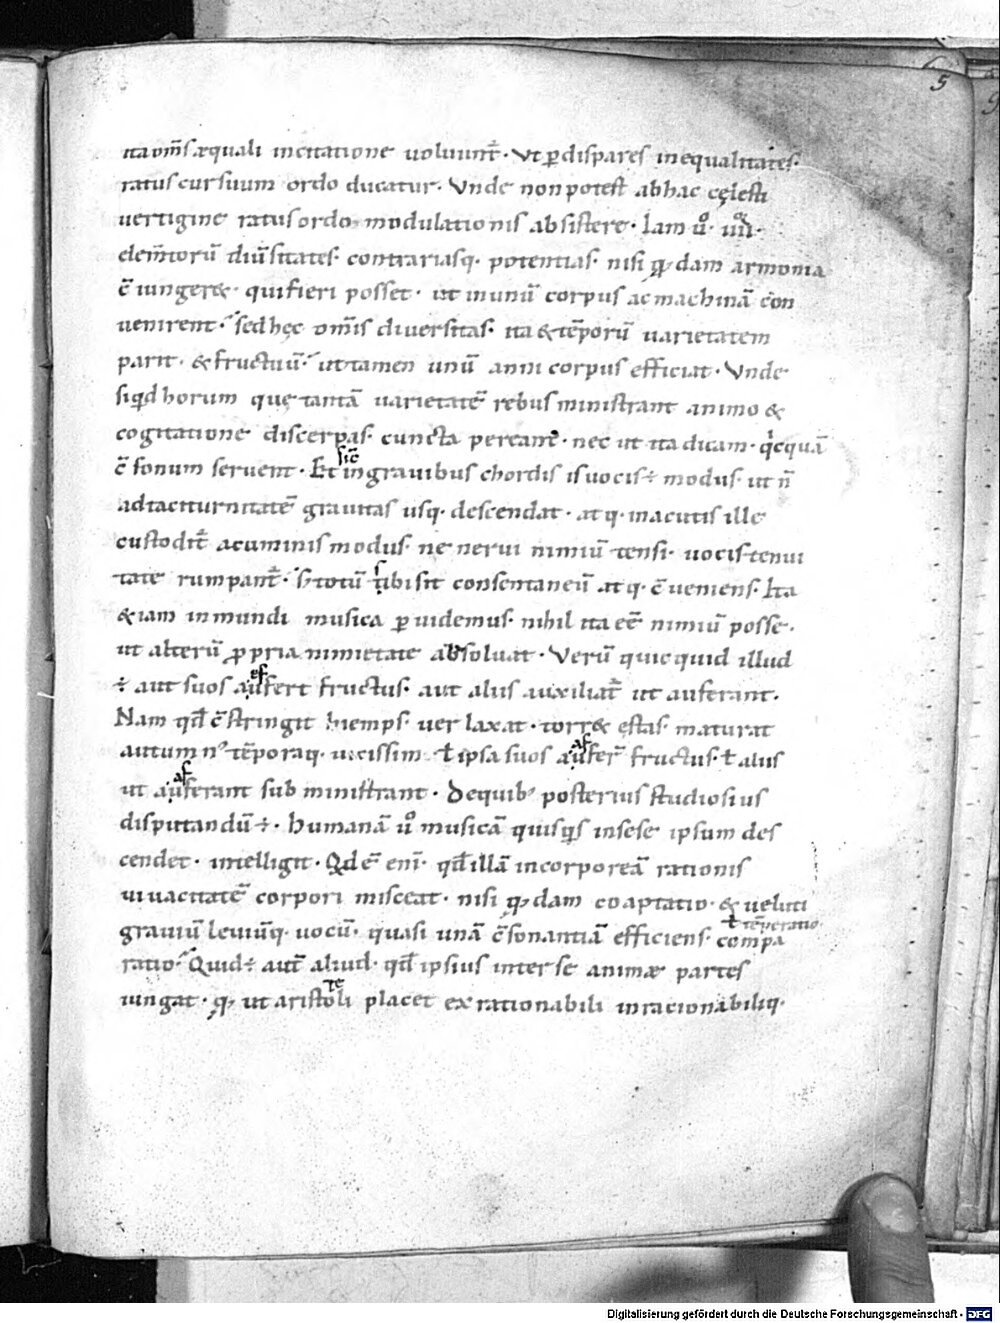 5
ita om̅s æquali incitatione uoluunt̅· Vt ꝑ dispares inequalitates·
ratus cursuum ordo ducatur· Vnde non potest ab hac cęlesti
uertigine ratus ordo modulationis absistere· Iam ů·
elem̅torū diu̅sitates contrariasq· potentias nisi quȩdam armonia
c̅iungeret· qui fieri posset· ut in unū corpus ac machinā con
uenirent· sed hęc om̅is diuersitas· ita & te̅porū uarietatem
parit· & fructuū· ut tamen unū anni corpus efficiat· Vnde
siqd horum quę tantā uarietate̅ rebus ministrant animo &
cogitatione discerpas· cuncta pereant· nec ut ita dicam· qicquā
c̅sonum seruent· Et sic̅ in grauibus chordis is uocis ÷ modus· ut n̅
ad taciturnitate̅ grauitas usq· descendat· atq· in acutis ille
custodit̅ acuminis modus· ne nerui nimiū tensi· uocis tenui
tate rumpant̅· s; totū sibi sit consentaneū atq· c̅ueniens· Ita
& iam in mundi musica ꝑuidemus· nihil ita ee̅ nimiū posse·
ut alterū ꝓpria nimietate absoluat· Verū quicquid illud
÷ aut suos afert fructus· aut aliis auxiliat̅ ut auferant·
Nam qd̅ c̅stringit hiemps· uer laxat· torret ęstas· maturat
autumn'· te̅poraq· uicissim· ł ipsa suos afer̅ fructus· ł aliis
ut aferant sub ministrant· De quib' posterius studiosius
disputandū ÷· Humanā ů musicā quisqs in sese ipsum des
cendet· intelligit· Qd e̅ eni̅· qd̅ illā incorporeā rationis
uiuacitate̅ corpori misceat· nisi quȩdam coaptatio· & ueluti
ł te̅peratio
grauiū leuiūq· uocū· quasi unā c̅sonantiā efficiens· compa
ratio· Quid ÷ aut̅ aliud· qd̅ ipsius inter se animæ partes
iungat· quȩ ut aristoteli placet ex rationabili inracionabiliq·
Digitalisierung gefördert durch die Deutsche Forschungsgemeinschaft - DFG